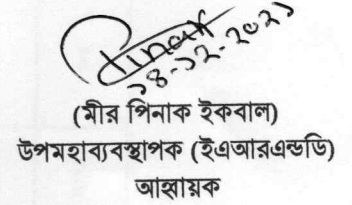 Pinak
১৪-১২-২০২১
(মীর পিনাক ইকবাল)
উপমহাব্যবস্থাপক (ইএআরএন্ডডি)
আহ্বায়ক